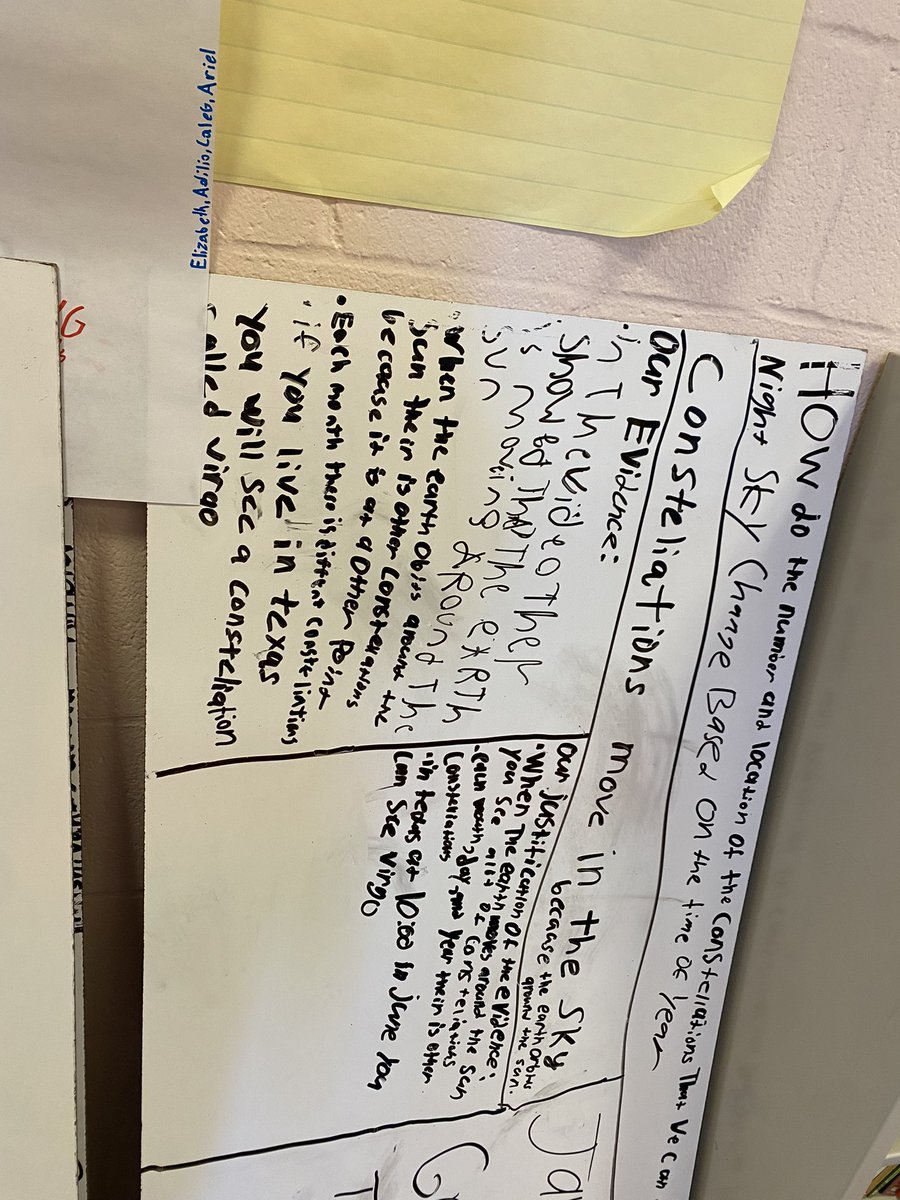 How do the number and location of the Constellations That We Can
Night Sky Change Based on the time of Year
Consteliations move in the sky
because the earth orbits
around the sun.
Our Evidence:
in The Video They
Showed That The EARTH
is moving AROUND The
Sun
•When the earth obits around the
Sun their is other Constelations
because it is at a Other Point
•Each month there is different Constelintions
•if you live in texas
You will see a consteliation
alled virgo
Our justification of the evidence:
•When The earth moves around the Sun
you See alot of Consteliations
•each month, day and Year their is other
Constellations
•in texas at 10:00 in june you
Can see virgo
Elizabeth, Adilio, Caleb, Ariel